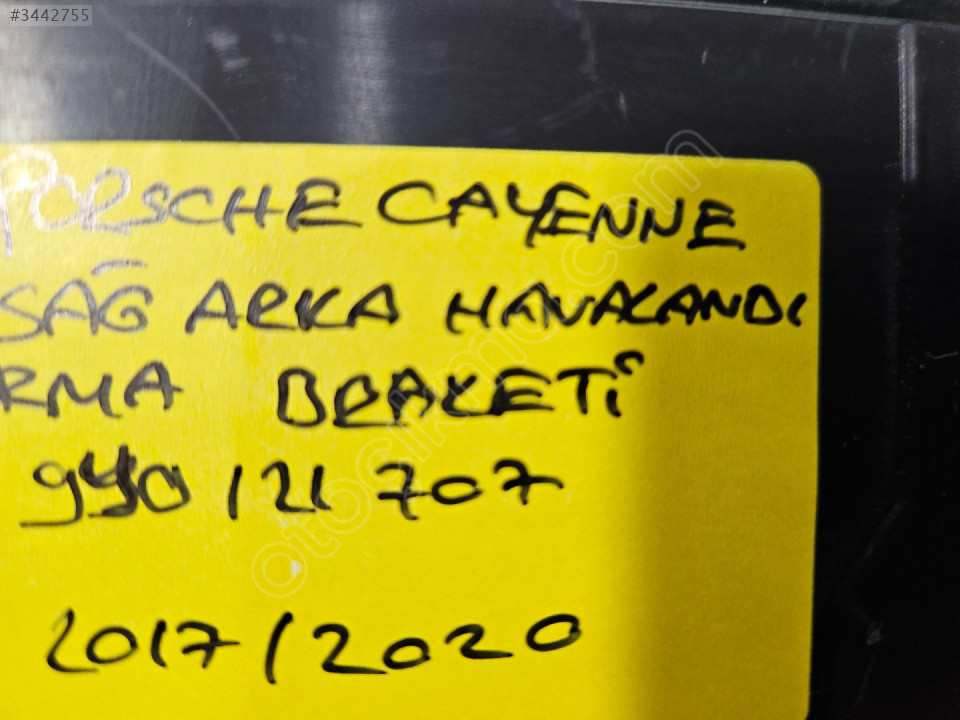 #3442755
PORSCHE CAYENNE
SAĞ ARKA HAVALANDI
RMA BRAKETİ
9Y0 121 707
2017/2020
otocikma.com